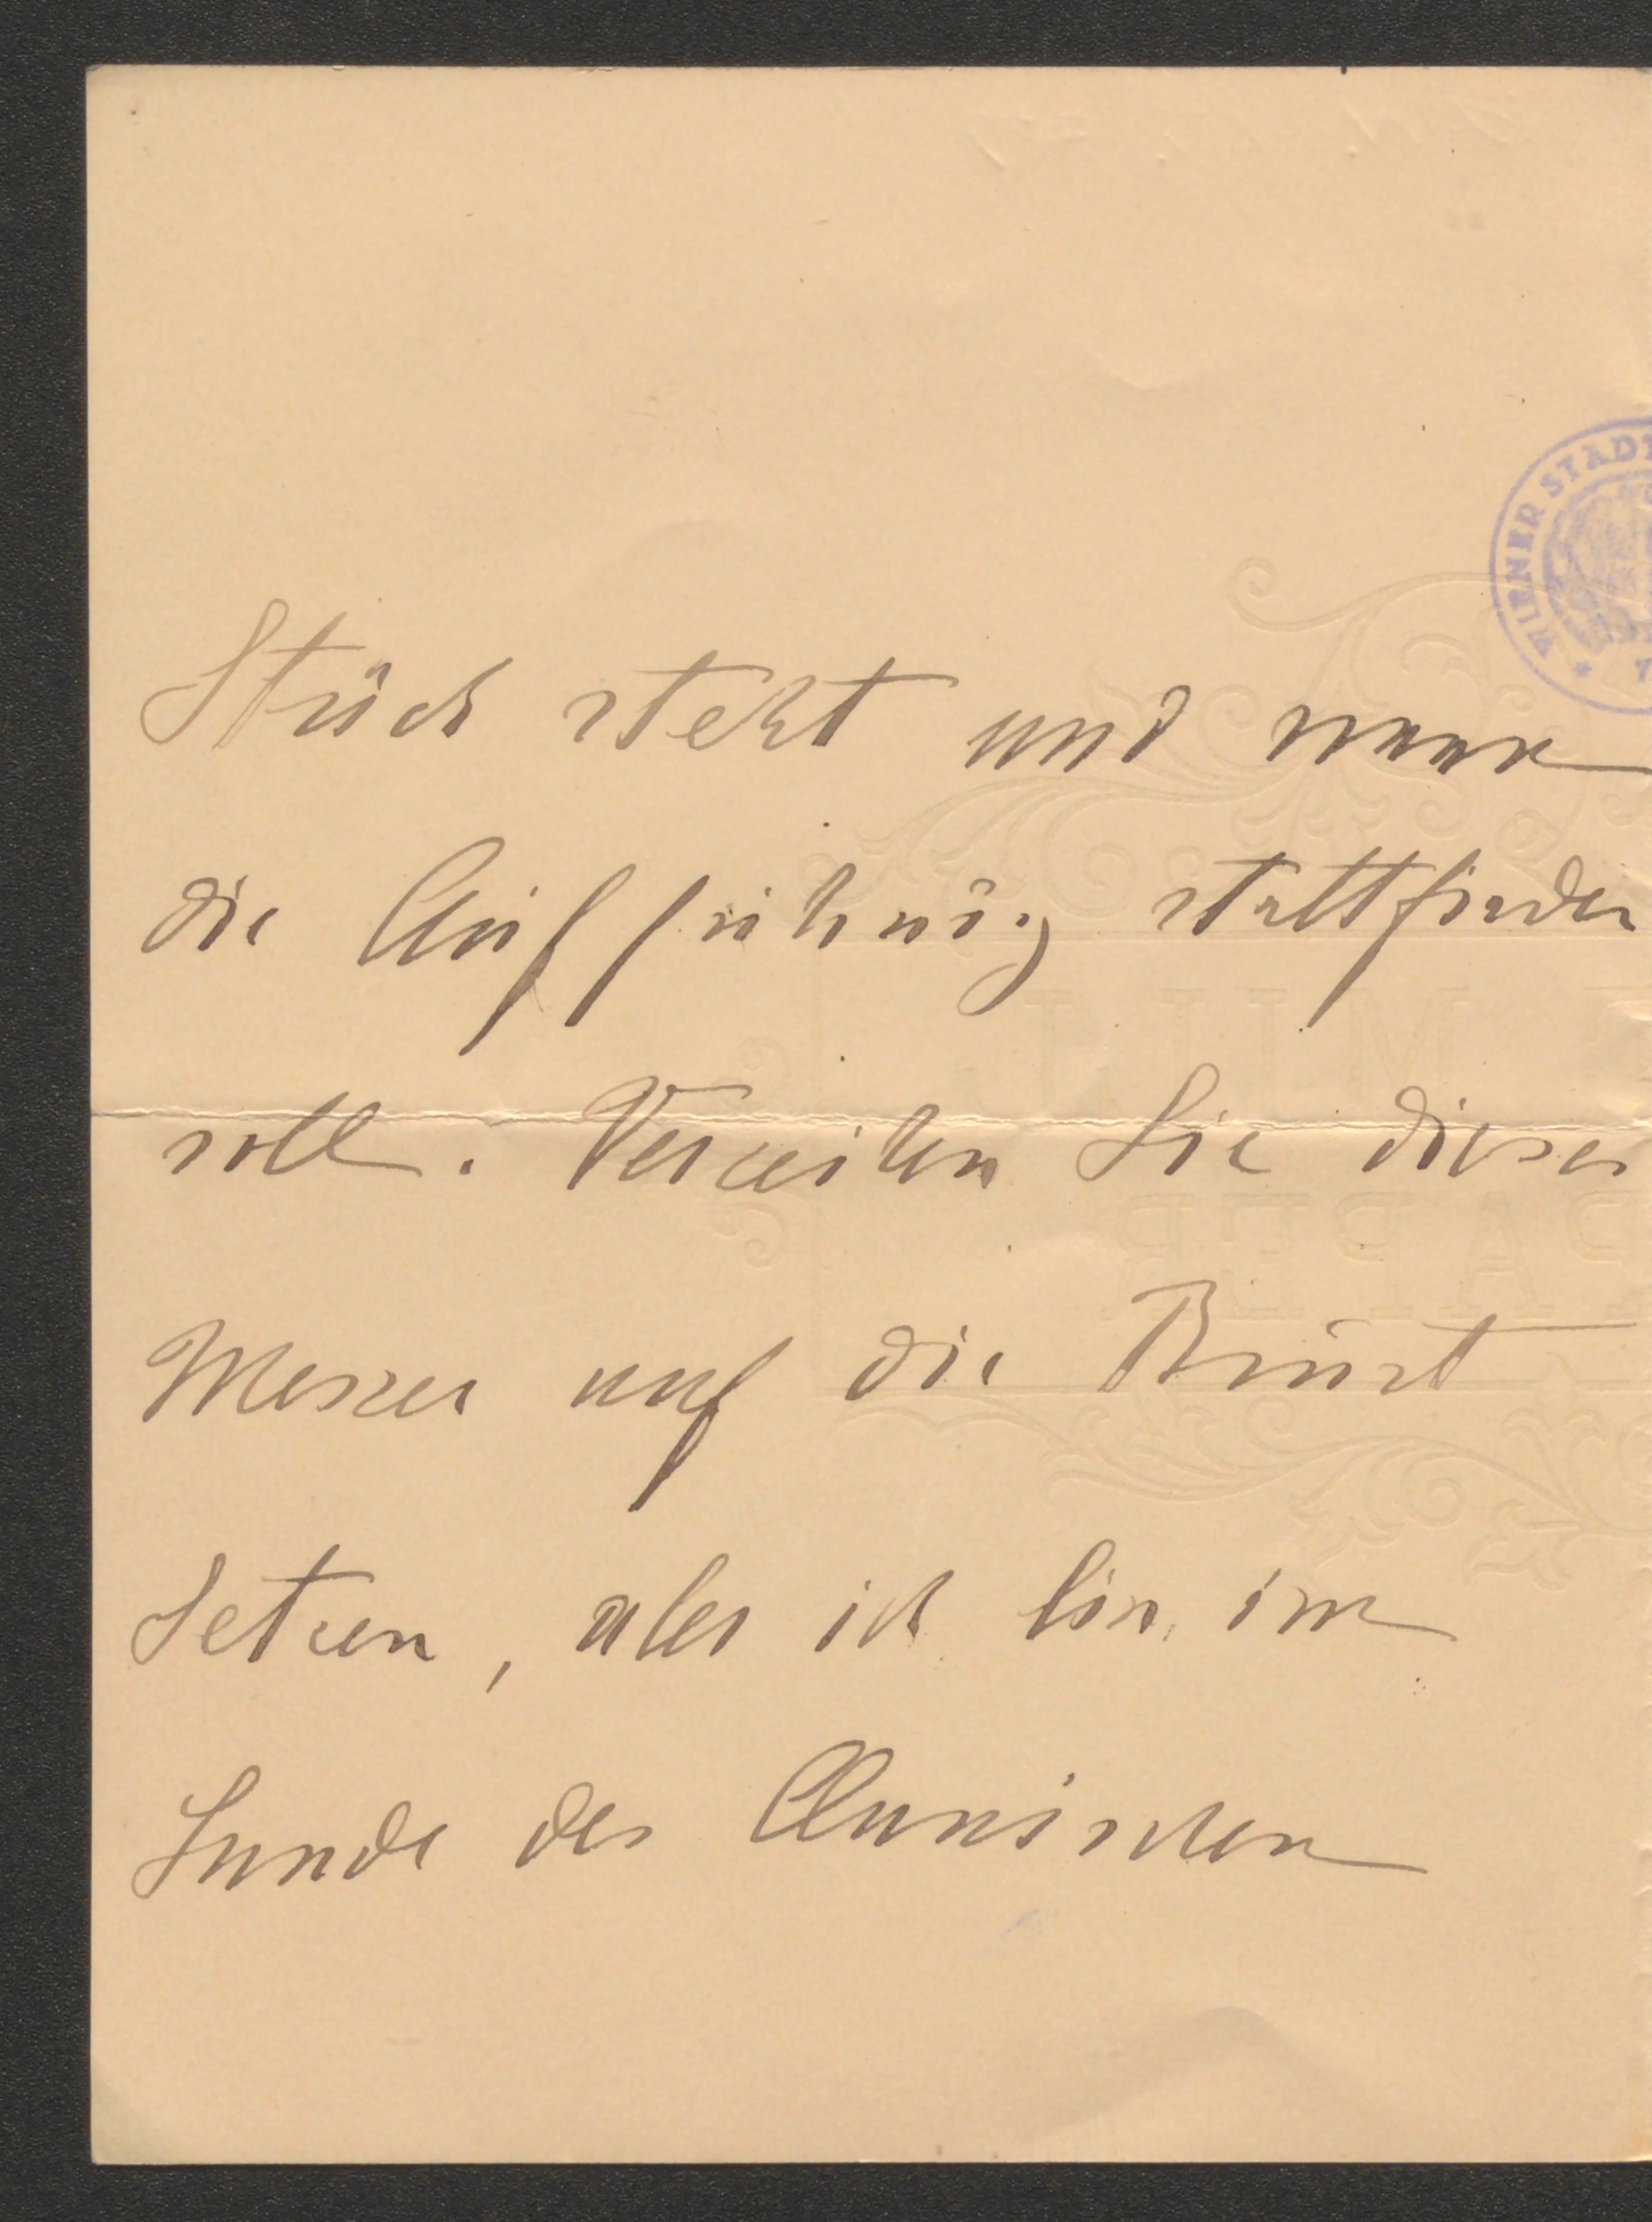 WIENER STADT
Stück steht und wann
die Aufführung stattfinden
soll. Verzeihen Sie dieses
Messer auf die Brust
Setzen, aber ich bin im
Lande der